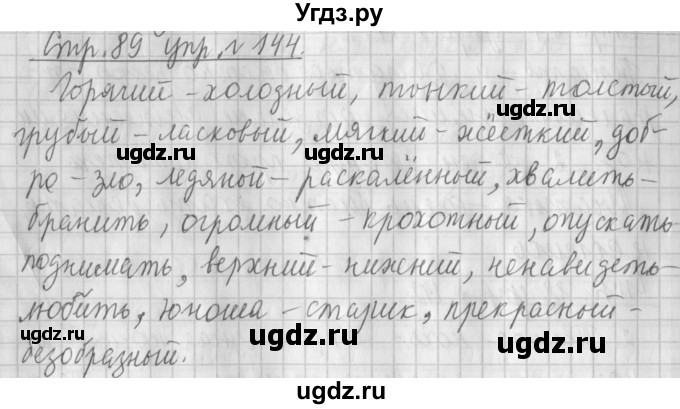 УгдZ.ру
Стр. 89 упр. № 144.
Горячий - холодный, тонкий - толстый,
грубый - ласковый, мягкий - жёсткий, доб-
ро - зло, ледяной - раскалённый, хвалить -
бранить, огромный - крохотный, опускать -
поднимать, верхний - нижний, ненавидеть -
любить, юноша - старик, прекрасный -
безобразный.
ugdz.ru ugdz.ru
ugdz.ru ugdz.ru
ugdz.ru ugdz.ru
ugdz.ru ugdz.ru
ugdz.ru